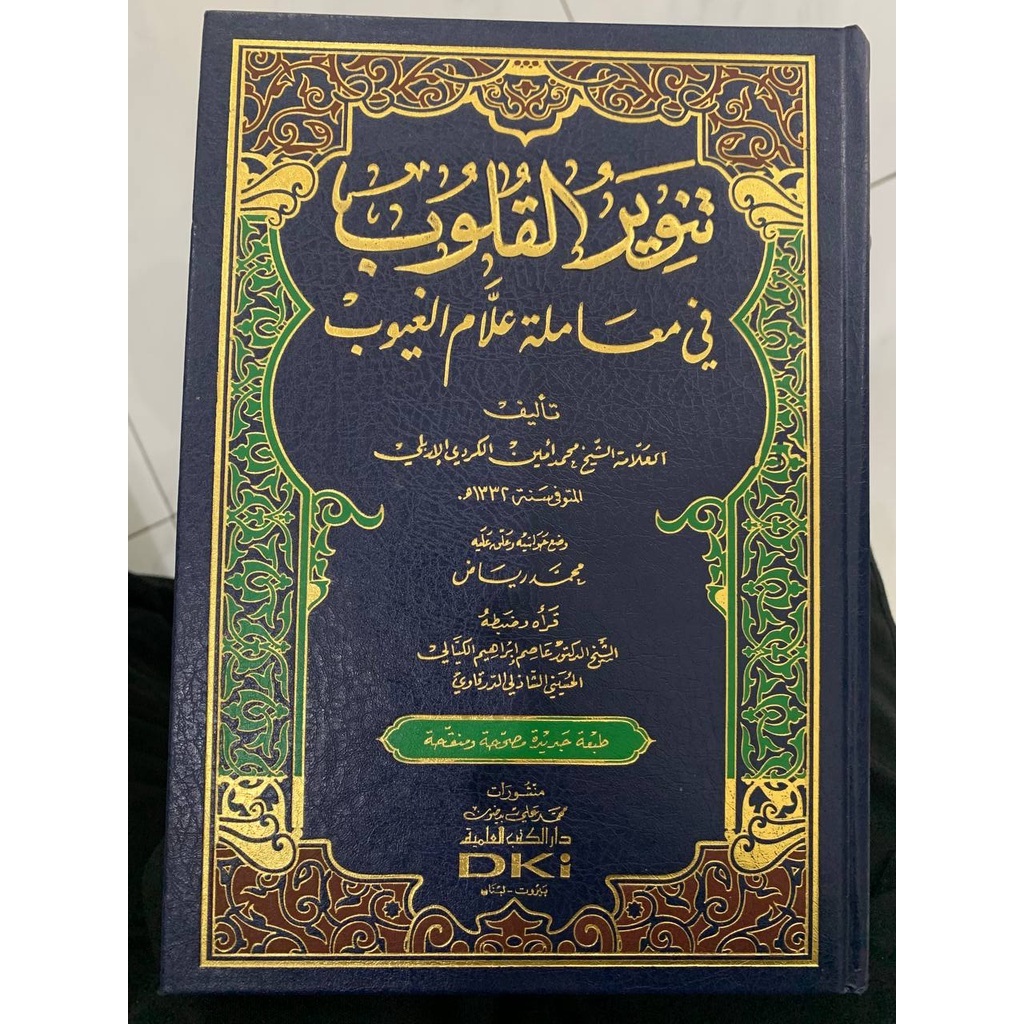 تنوير القلوب
في معاملة علام الغيوب
تأليف
العلامة الشيخ محمد أمين الكردي الإربلي
المتوفى سنة ١٣٣٢هـ
وضع حواشيه وعلق عليه
محمد رياض
قرأه وضبطه
الشيخ الدكتور عاصم إبراهيم الكيالي
الحسيني الشاذلي الدرقاوي
طبعة جديدة مصححة ومنقحة
منشورات
محمد علي بيضون
دار الكتب العلمية
DKi
بيروت - لبنان